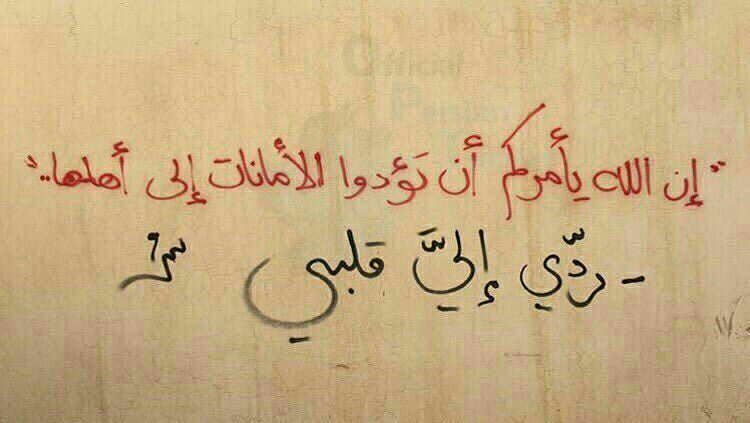 "إن الله يأمركم أن تؤدوا الأمانات إلى أهلها.."
- ردّي إليَّ قلبي
١٧